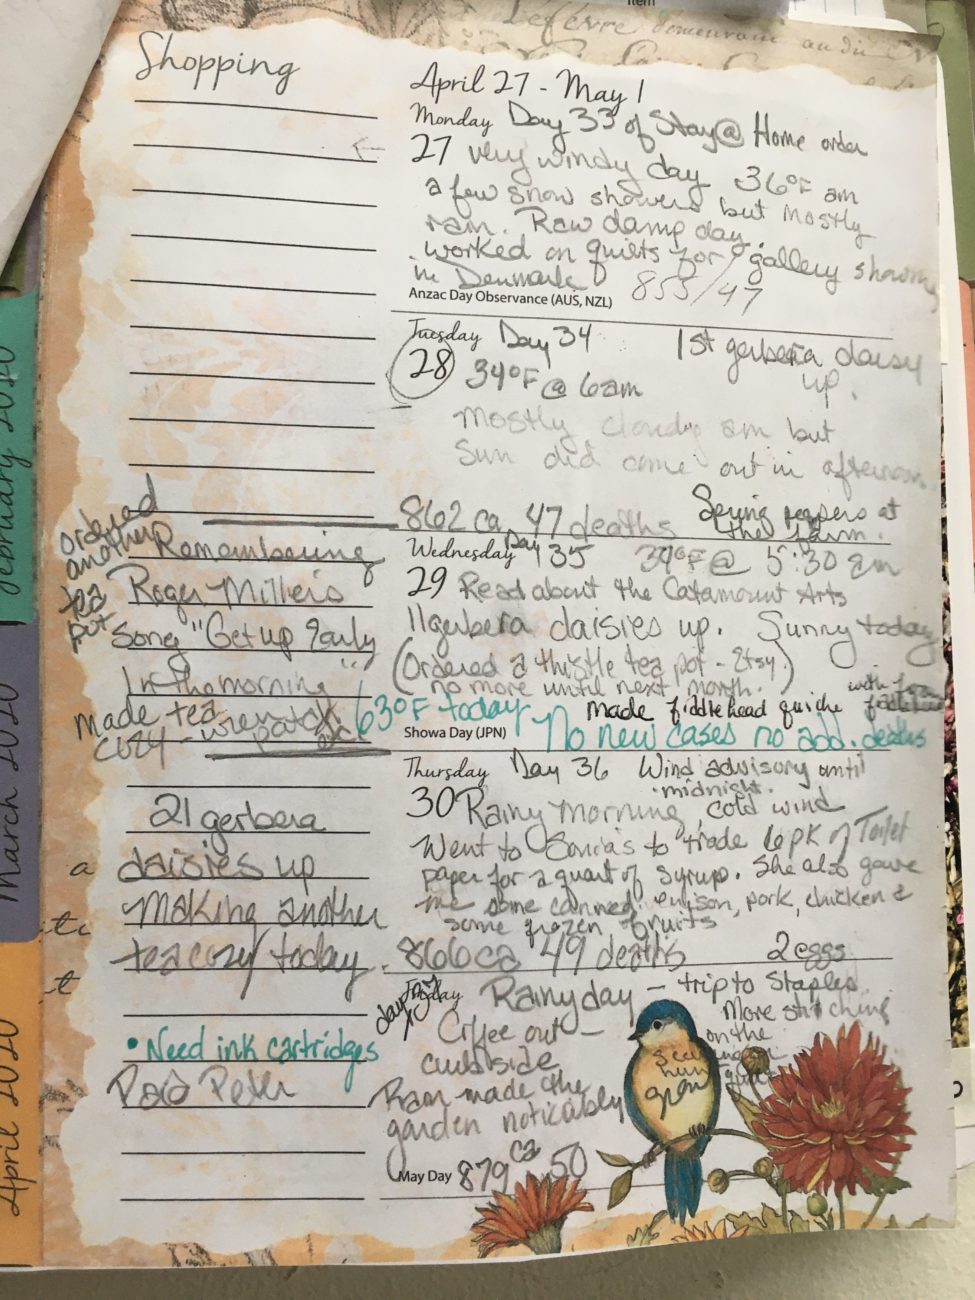 item
Lefévre demeurant au dit
Shopping
April 27 - May 1
Monday Day 33 of Stay@ Home order
27 very windy day 36°F am
a few snow showers but mostly
rain. Raw damp day.
worked on quilts for gallery showing
in Denmark 855/47
Anzac Day Observance (AUS, NZL)
Tuesday Day 34 1st gerbera daisy
28 34°F @ 6am up.
Mostly cloudy am but
Sun did come out in afternoon
862 ca 47 deaths Spring peepers at
the farm.
Wednesday Day 35 34°F @ 5:30 am
29 Read about the Catamount Arts
11 gerbera daisies up. Sunny today
(Ordered a thistle tea pot - Etsy.)
no more until next month.
63°F today made fiddlehead quiche with
Showa Day (JPN) No new cases no add. deaths
Thursday Day 36 Wind advisory until
midnight.
30 Rainy morning, cold wind
Went to Sonia's to trade 6 pk of Toilet
paper for a quart of syrup. She also gave
me some canned venison, pork, chicken &
some frozen fruits
866 ca 49 deaths 2 eggs
Friday Rainy day - trip to Staples
day 37 More stitching
Coffee out - on the
curbside
Rain made the
garden noticably
green
May Day 879 ca 50
ordered
another
tea
pot
Remembering
Roger Miller's
Song "Get up Early
In the morning"
made tea
cozy -
21 gerbera
daisies up
Making another
tea cozy today.
• Need ink cartridges
Paid Peter
February 2020
March 2020
April 2020
a
t